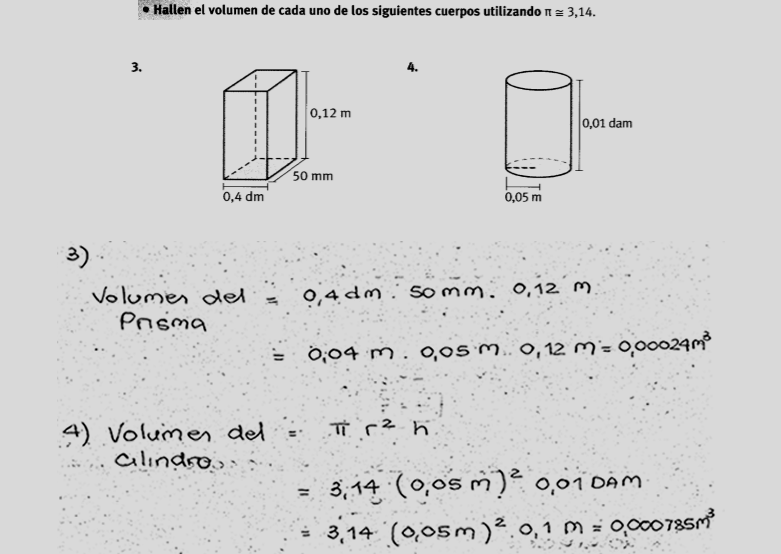 • Hallen el volumen de cada uno de los siguientes cuerpos utilizando π ≅ 3,14.
3.
4.
0,12 m
0,01 dam
50 mm
0,4 dm
0,05 m
3)
Volumen del = 0,4 dm . 50 mm . 0,12 m
Prisma
= 0,04 m . 0,05 m . 0,12 m = 0,00024 m³
4) Volumen del = π r² h
Cilindro
= 3,14 (0,05 m)² 0,01 DAM
= 3,14 (0,05 m)² . 0,1 m = 0,000785 m³